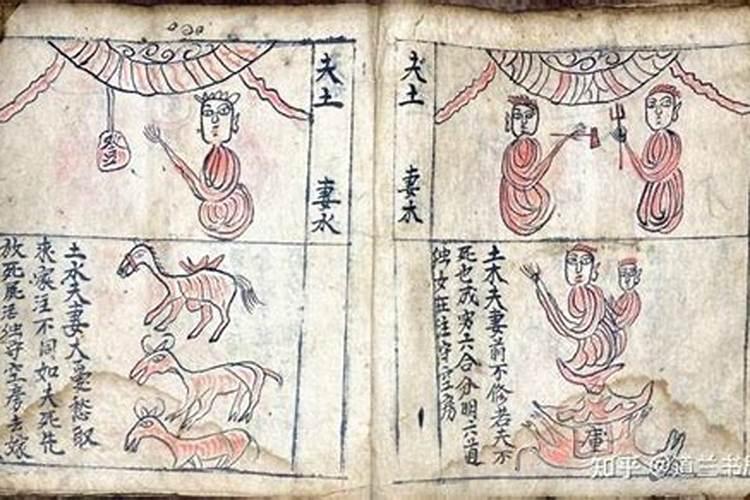 庫
土木夫妻前不修若夫不
死也成穷六合分明六道
独女在生守空房
夫土 妻木
夫土 妻水
土水夫妻大憂愁取
来家注不同如夫死先
放死屍活独守空房去嫁
知乎 @道兰书